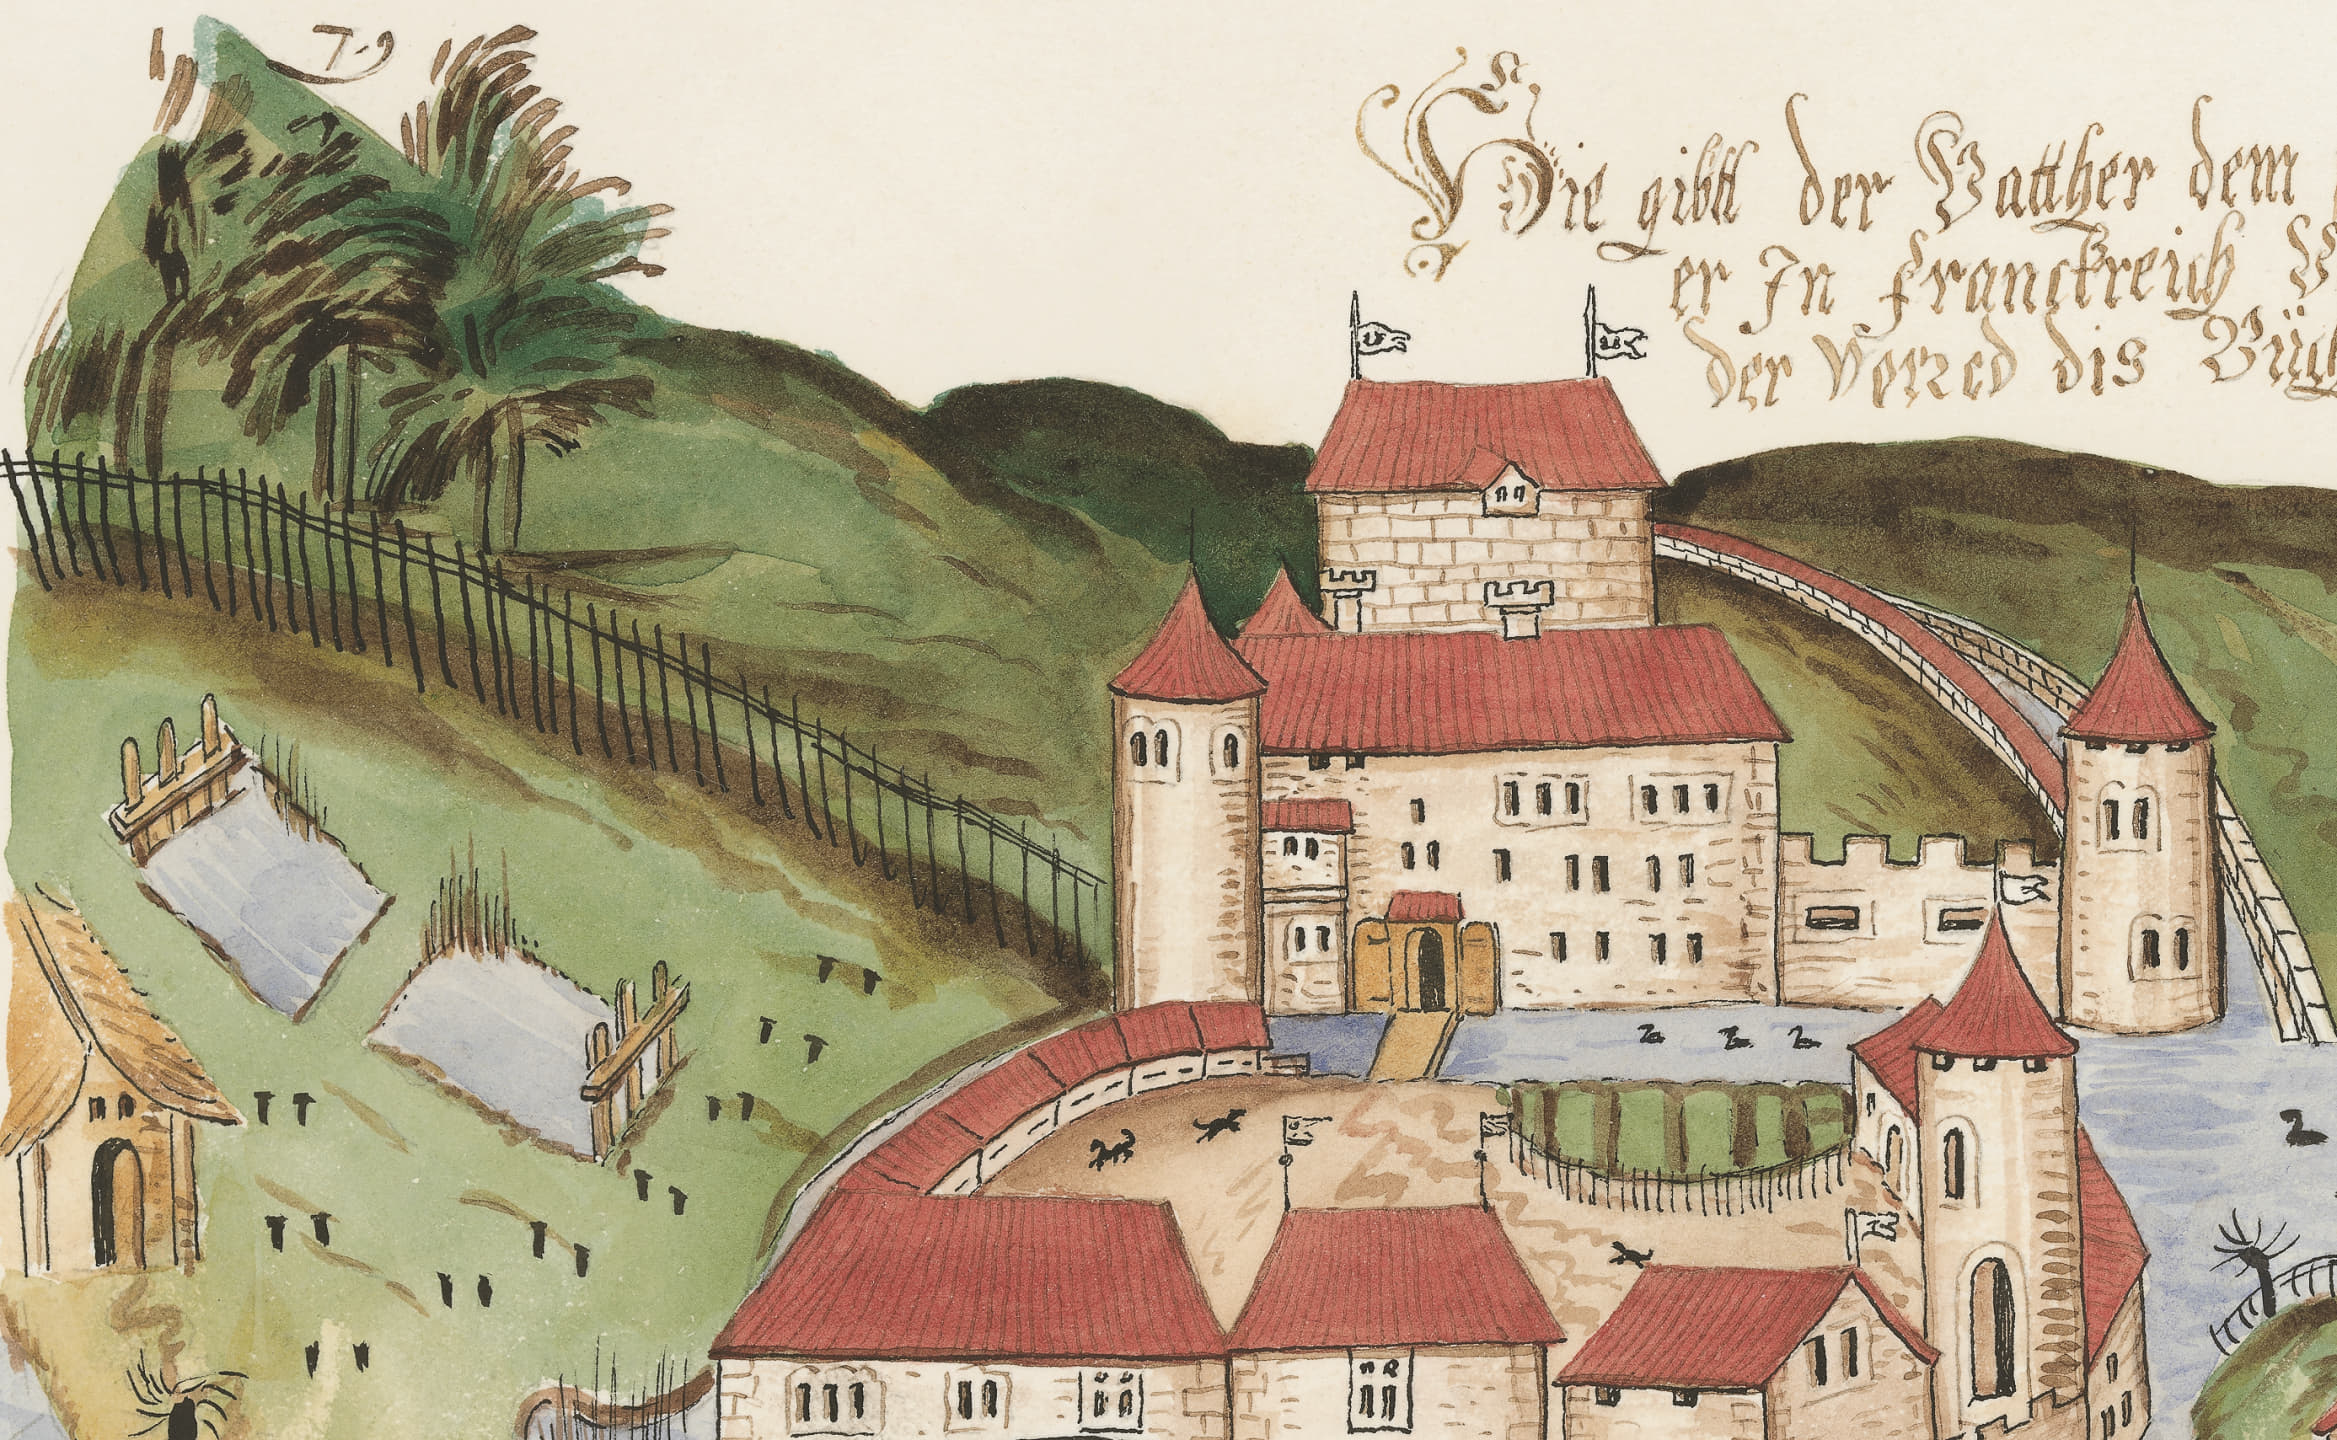 79
Hie gibtt der Vatther dem
er In Franckreich
der Vorred dis